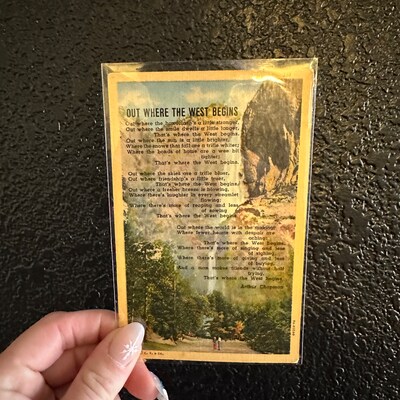 OUT WHERE THE WEST BEGINS
Out where the handclasp's a little stronger,
Out where the smile dwells a little longer,
That's where the West begins,
Out where the sun is a little brighter,
Where the snows that fall are a trifle whiter,
Where the bonds of home are a wee bit
tighter;
That's where the West begins.
Out where the skies are a trifle bluer,
Out where friendship's a little truer,
That's where the West begins,
Out where a fresher breeze is blowing,
Where there's laughter in every streamlet
flowing;
Where there's more of reaping and less
of sowing
That's where the West begins.
Out where the world is in the making
Where fewer hearts with despair are
aching
That's where the West begins
Where there's more of singing and less
of sighing
Where there's more of giving and less
of buying
And a man makes friends without half
trying,
That's where the West begins.
Arthur Chapman